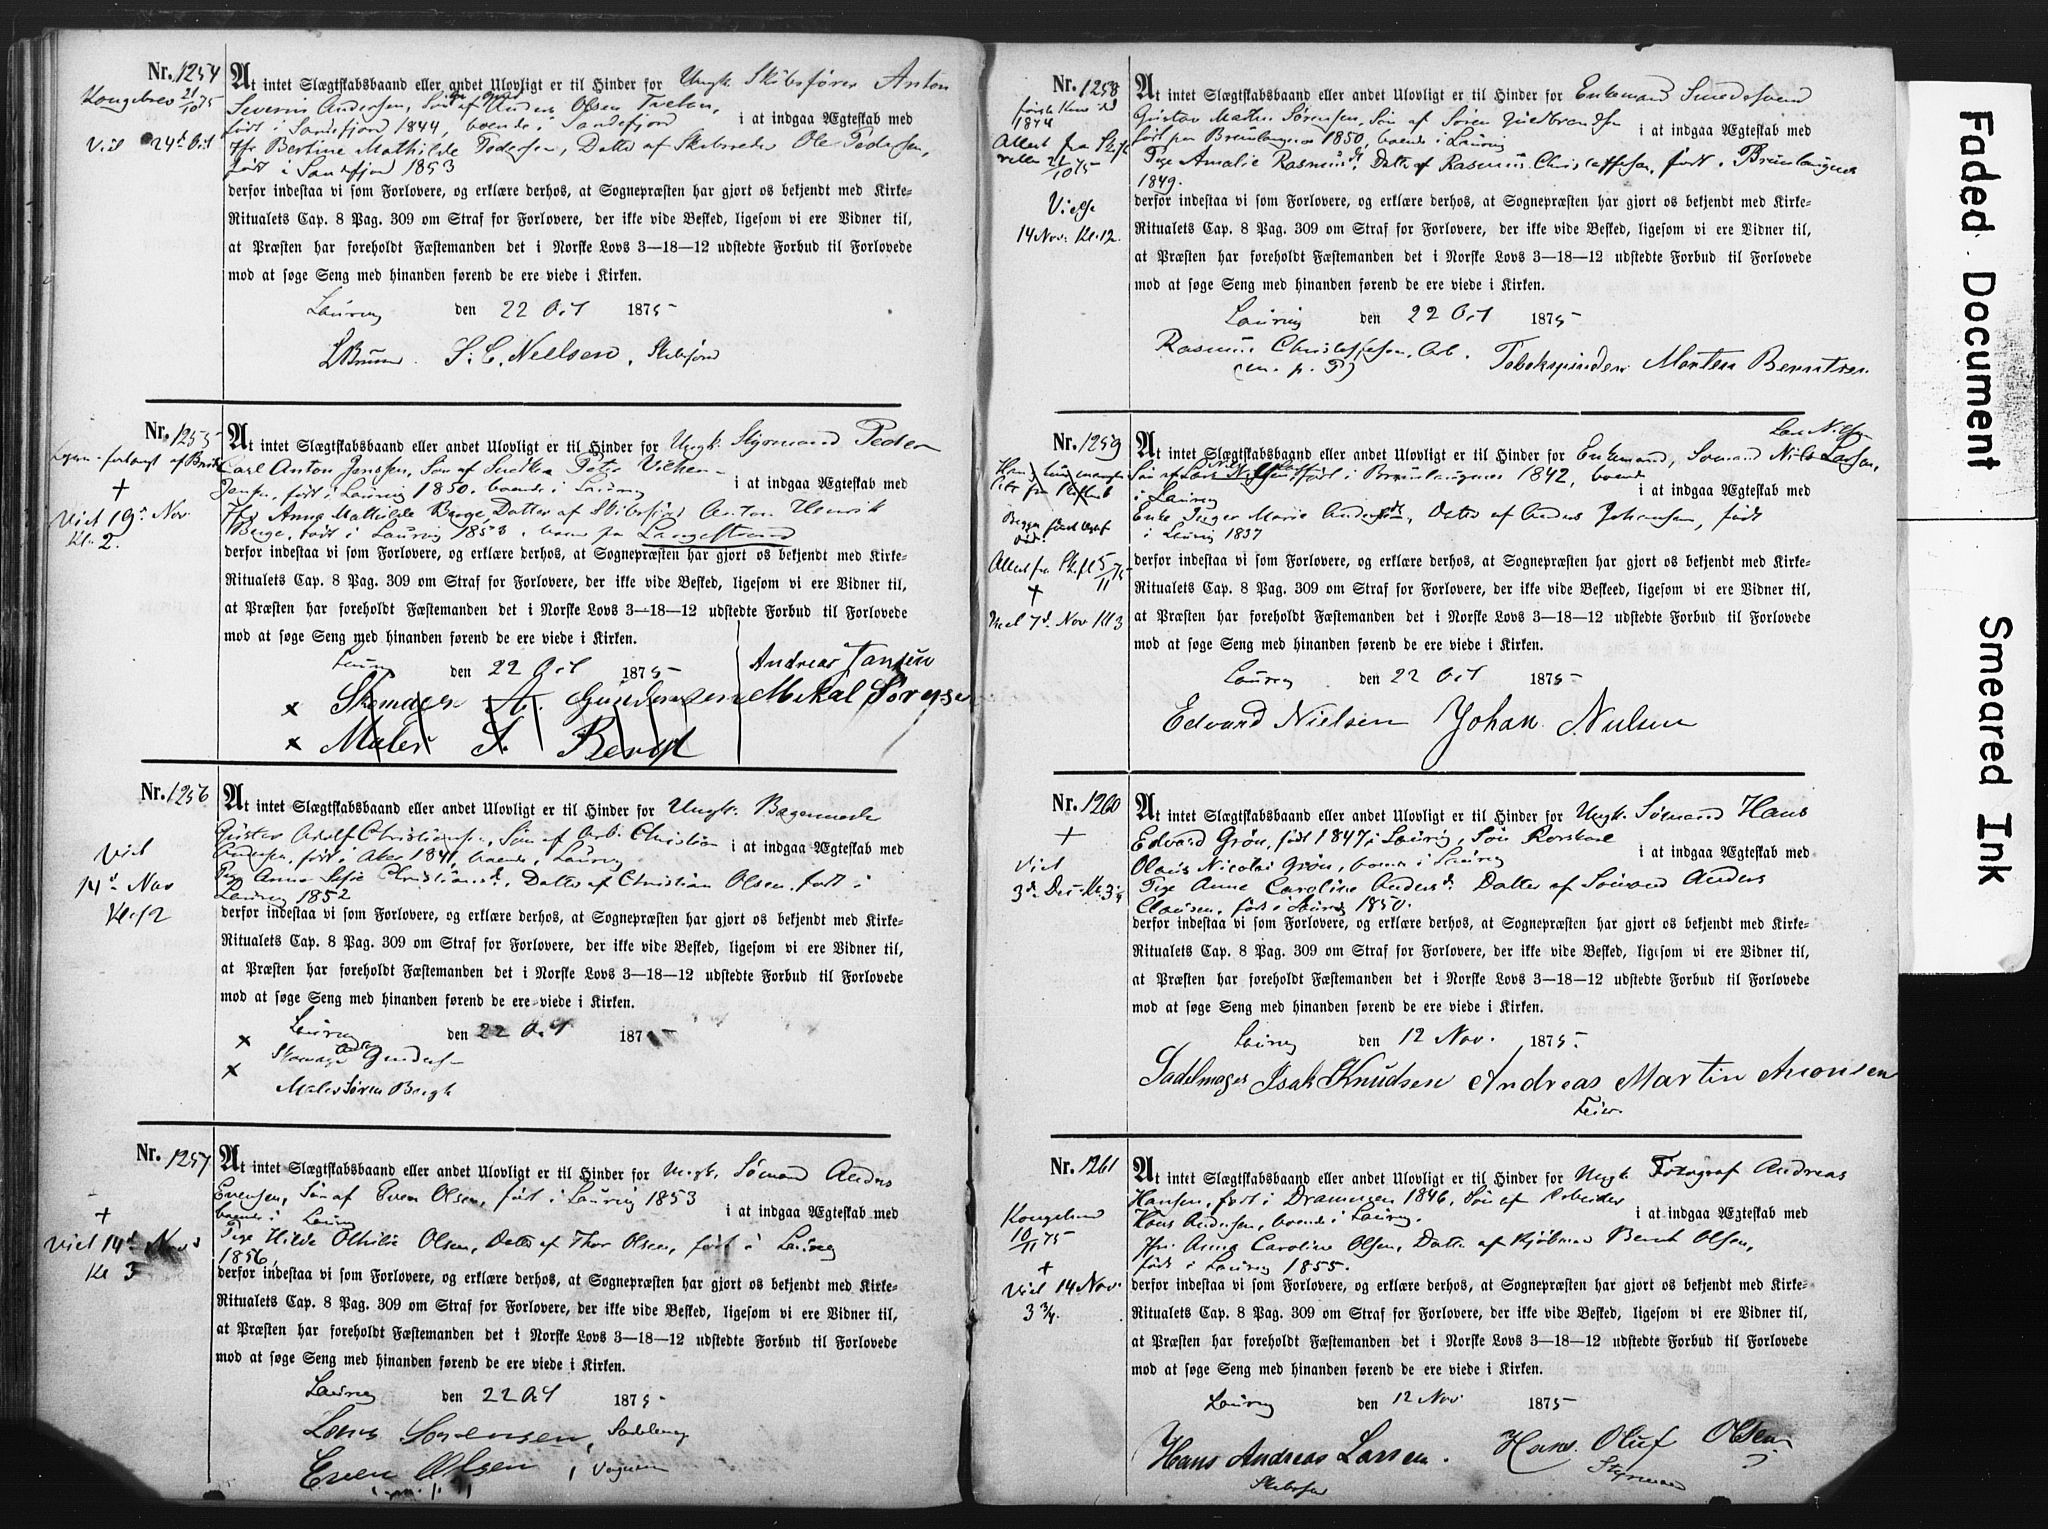 Nr. 1254
Kongebrev 21/10 75
Viet 24de Oct
At intet Slægtskabsbaand eller andet Ulovligt er til Hinder for Ungk. Skibsfører Anton
Severin Andersen, Søn af Anders Olsen
født i Sandefjord 1844, boende i Sandefjord i at indgaa Ægteskab med
Jfr Bertine Mathilde Pedersen, Datter af Skibsreder Ole Pedersen,
født i Sandefjord 1853
derfor indestaa vi som Forlovere, og erklære derhos, at Sognepræsten har gjort os bekjendt med Kirke-
Ritualets Cap. 8 Pag. 309 om Straf for Forlovere, der ikke vide Besked, ligesom vi ere Vidner til,
at Præsten har foreholdt Fæstemanden det i Norske Lovs 3—18—12 udstedte Forbud til Forlovede
mod at søge Seng med hinanden førend de ere viede i Kirken.
Laurvig den 22 Oct 1875
S. C. Nielsen, Skibsfører
Nr. 1255
Viet 19de Nov
Kl. 2.
At intet Slægtskabsbaand eller andet Ulovligt er til Hinder for Ungk. Styrmand Peder
Carl Anton Jenssen, Søn af Snedker Peter
Jensen, født i Laurvig 1850, boende i Laurvig i at indgaa Ægteskab med
Jfr Anna Mathilde Berge, Datter af Skibsfører Anton Henrik
Berge, født i Laurvig 1853, boende paa Langestrand
derfor indestaa vi som Forlovere, og erklære derhos, at Sognepræsten har gjort os bekjendt med Kirke-
Ritualets Cap. 8 Pag. 309 om Straf for Forlovere, der ikke vide Besked, ligesom vi ere Vidner til,
at Præsten har foreholdt Fæstemanden det i Norske Lovs 3—18—12 udstedte Forbud til Forlovede
mod at søge Seng med hinanden førend de ere viede i Kirken.
Laurvig den 22 Oct 1875
Andreas Jansen
Mekal Sørensen
× Skomager A. Gundersen
× Maler S. Bergh
Nr. 1256
Viet
14de Nov
Kl. 12
At intet Slægtskabsbaand eller andet Ulovligt er til Hinder for Ungk. Bagermester
Gustav Adolf Christiansen, Søn af Arb. Christian
Andersen, født i Aker 1841, boende i Laurvig i at indgaa Ægteskab med
Pige Anne Sofie Christiansd., Datter af Christian Olsen, født i
Laurvig 1852
derfor indestaa vi som Forlovere, og erklære derhos, at Sognepræsten har gjort os bekjendt med Kirke-
Ritualets Cap. 8 Pag. 309 om Straf for Forlovere, der ikke vide Besked, ligesom vi ere Vidner til,
at Præsten har foreholdt Fæstemanden det i Norske Lovs 3—18—12 udstedte Forbud til Forlovede
mod at søge Seng med hinanden førend de ere viede i Kirken.
Laurvig den 22 Oct 1875
× Skomager Gundersen
× Maler Søren Bergh
Nr. 1257
+
Viet 14de Nov
Kl 3
At intet Slægtskabsbaand eller andet Ulovligt er til Hinder for Ungk. Sømand Anders
Evensen, Søn af Even Olsen, født i Laurvig 1853
boende i Laurvig i at indgaa Ægteskab med
Pige Hilde Othilie Olsen, Datter af Thor Olsen, født i Laurvig
1856,
derfor indestaa vi som Forlovere, og erklære derhos, at Sognepræsten har gjort os bekjendt med Kirke-
Ritualets Cap. 8 Pag. 309 om Straf for Forlovere, der ikke vide Besked, ligesom vi ere Vidner til,
at Præsten har foreholdt Fæstemanden det i Norske Lovs 3—18—12 udstedte Forbud til Forlovede
mod at søge Seng med hinanden førend de ere viede i Kirken.
Laurvig den 22 Oct 1875
Sorensen,
Even Olsen,
Nr. 1258
1874
Attest fra Skifte
retten 21/10 75
Vielse
14 Nov. Kl. 12.
At intet Slægtskabsbaand eller andet Ulovligt er til Hinder for Enkemand Smedsvend
Gustav Sørensen, Søn af Søren
født paa Brunlanges 1850, boende i Laurvig i at indgaa Ægteskab med
Pige Amalie Rasmusd., Datter af Rasmus Christoffersen, født i Brunlangnes
1849.
derfor indestaa vi som Forlovere, og erklære derhos, at Sognepræsten har gjort os bekjendt med Kirke-
Ritualets Cap. 8 Pag. 309 om Straf for Forlovere, der ikke vide Besked, ligesom vi ere Vidner til,
at Præsten har foreholdt Fæstemanden det i Norske Lovs 3—18—12 udstedte Forbud til Forlovede
mod at søge Seng med hinanden førend de ere viede i Kirken.
Laurvig den 22 Oct 1875
Rasmus Christoffersen, Arb.
(m. p. P) Tobakspinder Morten Berntsen
Nr. 1259
Attest fra Skift 5/11 75
+
Viet 7de Nov Kl 3
Lars Nilsen
At intet Slægtskabsbaand eller andet Ulovligt er til Hinder for Enkemand, Sømand Nils Larsen,
Søn af født i Brunlangnes 1842, boende
i Laurvig i at indgaa Ægteskab med
Enke Inger Marie Andersd., Datter af Anders Johannsen, født
i Laurvig 1837
derfor indestaa vi som Forlovere, og erklære derhos, at Sognepræsten har gjort os bekjendt med Kirke-
Ritualets Cap. 8 Pag. 309 om Straf for Forlovere, der ikke vide Besked, ligesom vi ere Vidner til,
at Præsten har foreholdt Fæstemanden det i Norske Lovs 3—18—12 udstedte Forbud til Forlovede
mod at søge Seng med hinanden førend de ere viede i Kirken.
Laurvig den 22 Oct 1875
Edvard Nielsen Johan Nielsen
Nr. 1260
+
Viet
3de Dec. Kl. 3¼
At intet Slægtskabsbaand eller andet Ulovligt er til Hinder for Ungk. Sømand Hans
Edvard Grøn, født 1847 i Laurvig, Søn Korskarl
Olaus Nicolai Grøn, boende i Laurvig i at indgaa Ægteskab med
Pige Anne Caroline Andersd. Datter af Sömand Anders
Clausen, født i Laurvig 1850.
derfor indestaa vi som Forlovere, og erklære derhos, at Sognepræsten har gjort os bekjendt med Kirke-
Ritualets Cap. 8 Pag. 309 om Straf for Forlovere, der ikke vide Besked, ligesom vi ere Vidner til,
at Præsten har foreholdt Fæstemanden det i Norske Lovs 3—18—12 udstedte Forbud til Forlovede
mod at søge Seng med hinanden førend de ere viede i Kirken.
Laurvig den 12 Nov. 1875.
Sadelmager Isak Knudsen Andreas Martin Amonsen
Feier
Nr. 1261
Kongebrev
10/11 75
+
Viet 14 Nov.
3 ¾.
At intet Slægtskabsbaand eller andet Ulovligt er til Hinder for Ungk. Fotograf Andreas
Hansen, født i Drammen 1846, Søn af Arbeider
Hans Andersen, boende i Laurvig. i at indgaa Ægteskab med
Jfr. Anna Caroline Olsen, Datter af Kjøbmand Bernt Olsen,
født i Laurvig 1855.
derfor indestaa vi som Forlovere, og erklære derhos, at Sognepræsten har gjort os bekjendt med Kirke-
Ritualets Cap. 8 Pag. 309 om Straf for Forlovere, der ikke vide Besked, ligesom vi ere Vidner til,
at Præsten har foreholdt Fæstemanden det i Norske Lovs 3—18—12 udstedte Forbud til Forlovede
mod at søge Seng med hinanden førend de ere viede i Kirken.
Laurvig den 12 Nov 1875
Hans Andreas Larsen. Hans Oluf Olsen
Skibsfør Styrmand
Faded Document
Smeared Ink